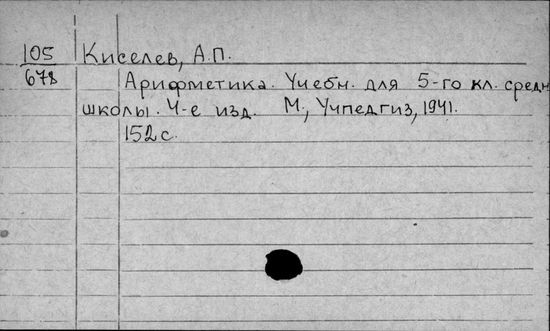 105 Киселев, А.П.
678 Арифметика. Учебн. для 5-го кл. средн
школы. 4-е изд. М., Учпедгиз, 1941.
152 с.